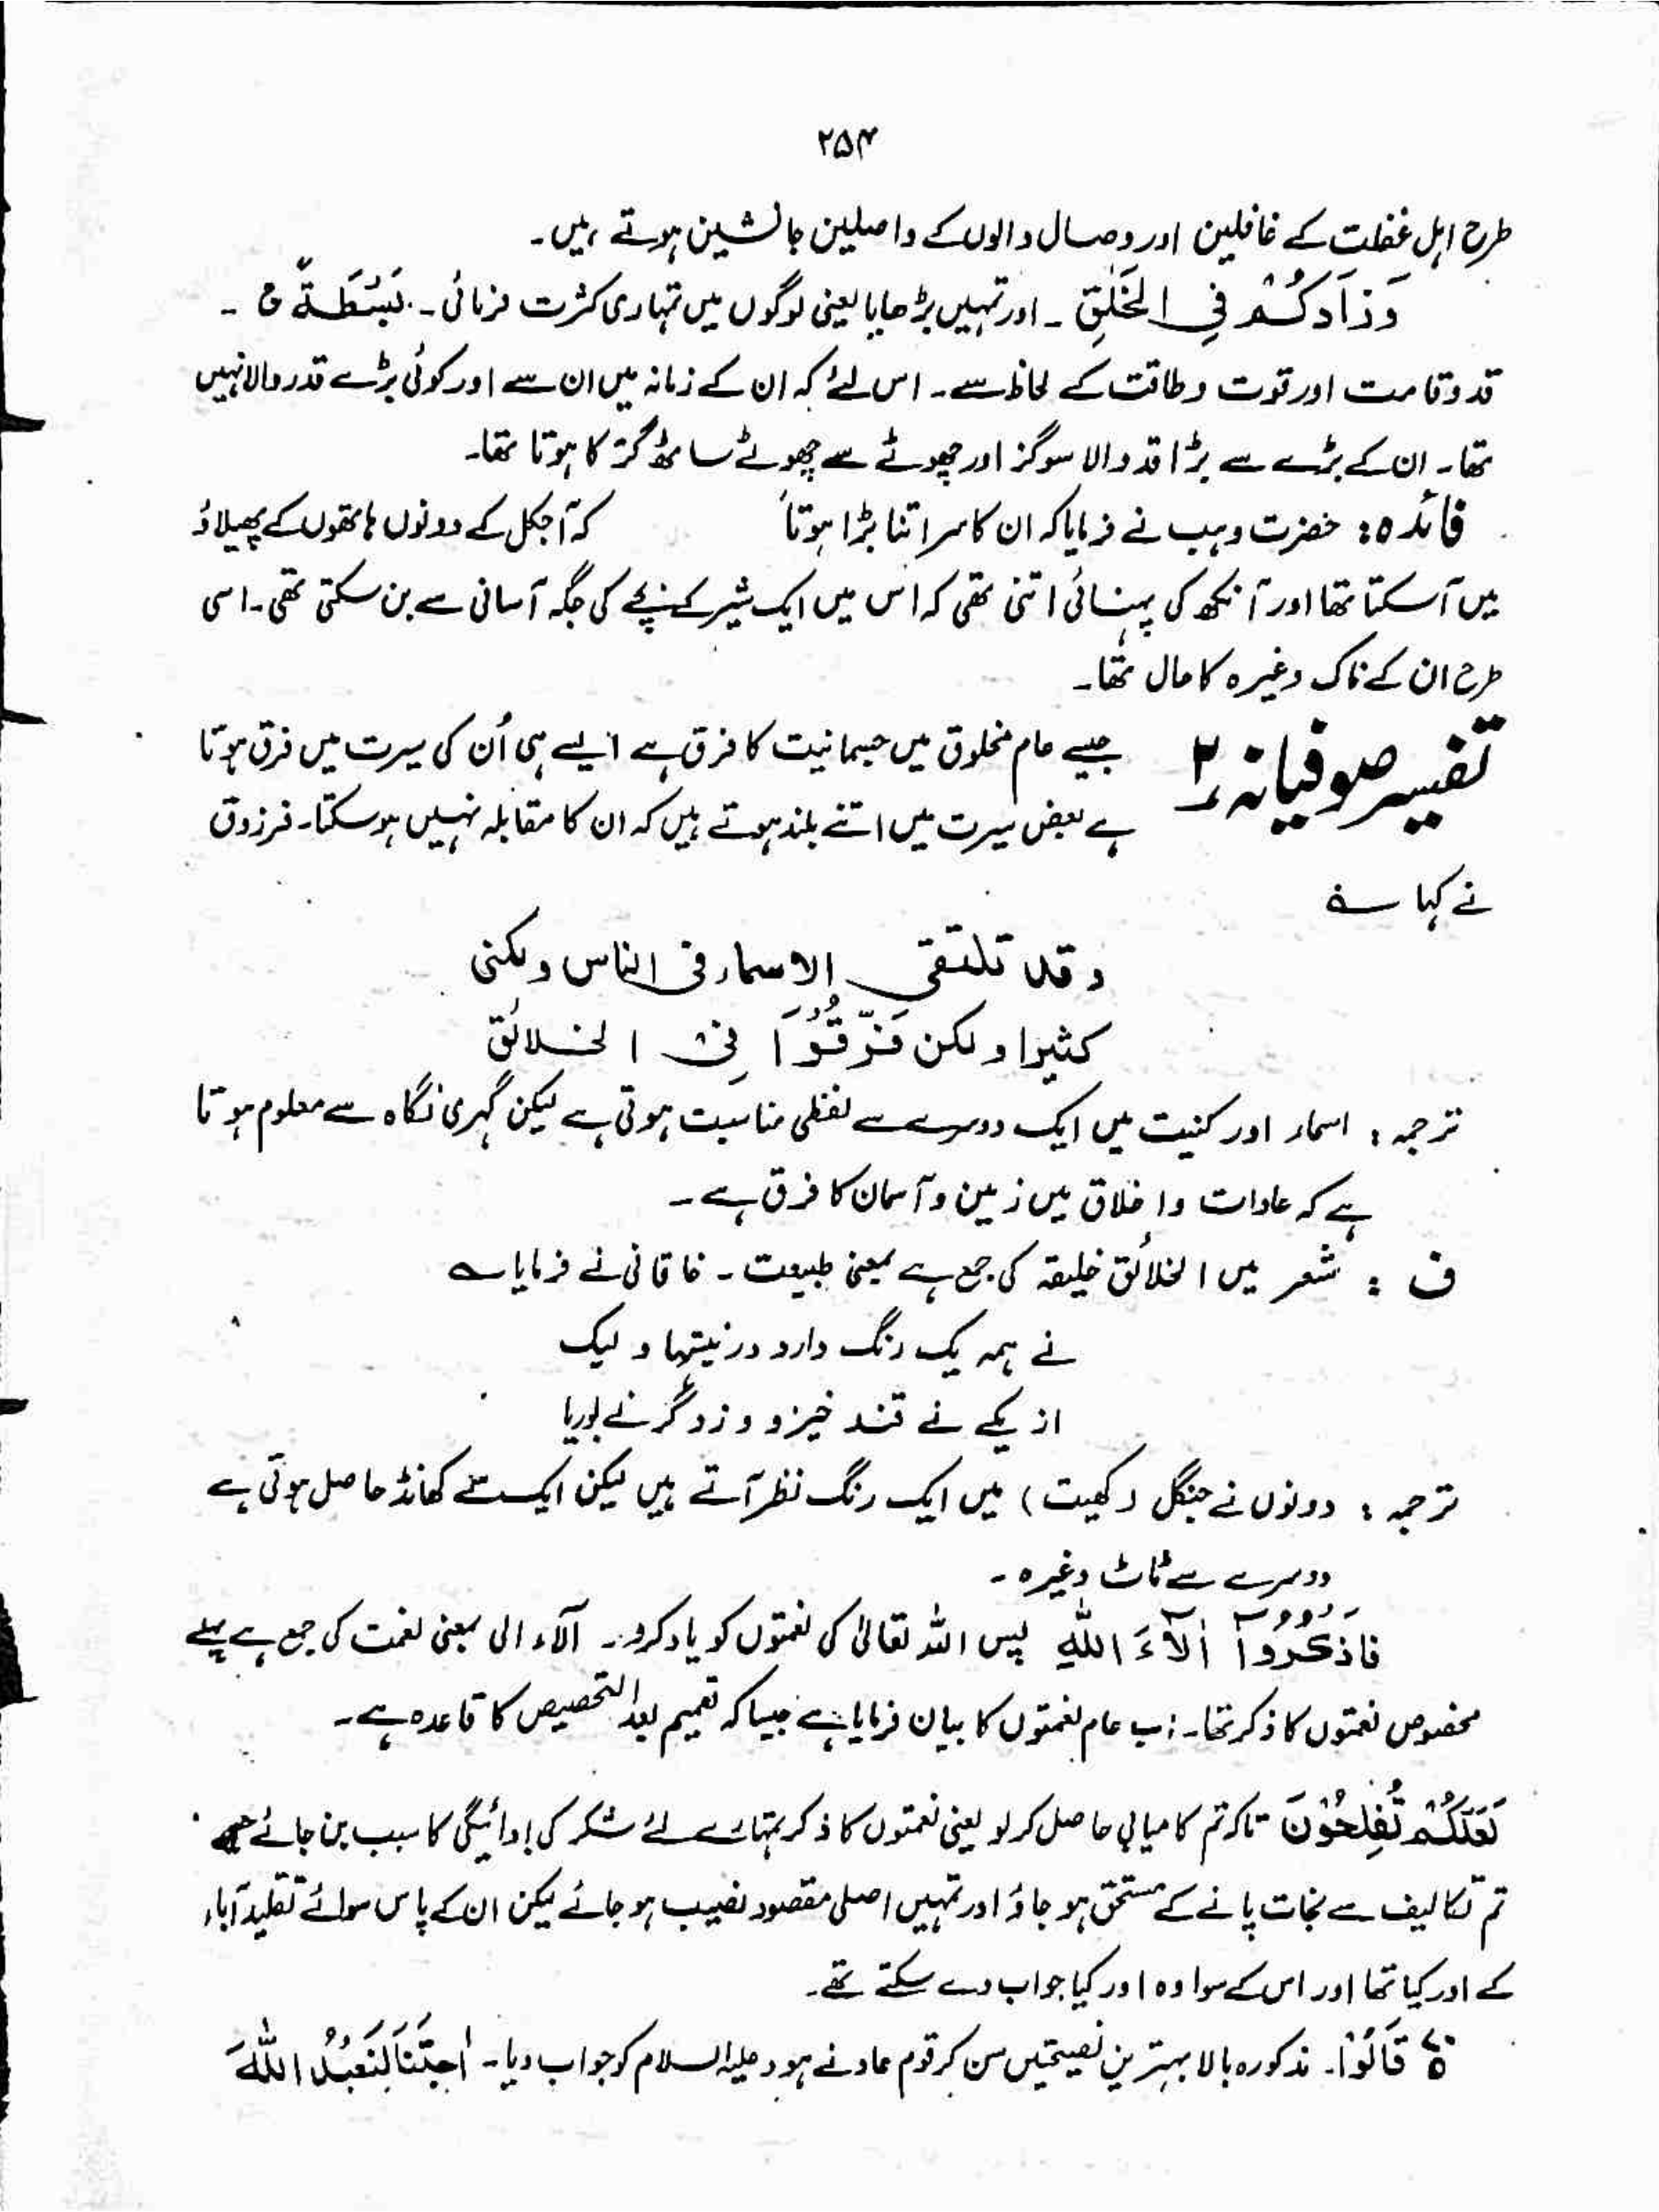 ۲۵۴
طرح اہل غفلت کے غافلین اور وصال والوں کے واصلین جانشین ہوتے ہیں۔
وَزَادَكُمْ فِي الْخَلْقِ ۔ اور تمہیں بڑھایا یعنی لوگوں میں تمہاری کثرت فرمائی ۔ بَسْۜطَةً ج ۔
قد و قامت اور قوت و طاقت کے لحاظ سے ۔ اس لئے کہ ان کے زمانہ میں ان سے اور کوئی بڑے قد والا نہیں
تھا۔ ان کے بڑے سے بڑا قد والا سو گز اور چھوٹے سے چھوٹے ساٹھ گز کا ہوتا تھا۔
فائدہ : حضرت وہب نے فرمایا کہ ان کا سر اتنا بڑا ہوتا کہ آجکل کے دونوں ہاتھوں کے پھیلاؤ
میں آ سکتا تھا اور آنکھ کی پہنائی اتنی تھی کہ اس میں ایک شیر کے بچے کی جگہ آسانی سے بن سکتی تھی۔ اسی
طرح ان کے ناک وغیرہ کا حال تھا۔
تفسیر صوفیانہ ۲ جیسے عام مخلوق میں جسمانیت کا فرق ہے ایسے ہی اُن کی سیرت میں فرق ہوتا
ہے بعض سیرت میں اتنے بلند ہوتے ہیں کہ ان کا مقابلہ نہیں ہو سکتا۔ فرزدق
نے کہا ؎
وقد تلتقی الاسماء فی الناس ولکنی
کثیرا ولکن فَرَّقُوْا فِی الخلائق
ترجمہ : اسماء اور کنیت میں ایک دوسرے سے لفظی مناسبت ہوتی ہے لیکن گہری نگاہ سے معلوم ہوتا
ہے کہ عادات و اخلاق میں زمین و آسمان کا فرق ہے ۔
ف : شعر میں الخلائق خلیقہ کی جمع ہے بمعنی طبیعت ۔ خاقانی نے فرمایا ؎
نے ہمہ یک رنگ دارد در نیستہا و لیک
از یکے نے قند خیزد و زدگر نے بوریا
ترجمہ : دونوں نے جنگل (کھیت) میں ایک رنگ نظر آتے ہیں لیکن ایک سے کھانڈ حاصل ہوتی ہے
دوسرے سے ٹاٹ وغیرہ ۔
فَاذْكُرُوْٓا اٰلَآءَ اللّٰهِ پس اللہ تعالیٰ کی نعمتوں کو یاد کرو ۔ آلآء الی بمعنی نعمت کی جمع ہے پہلے
مخصوص نعمتوں کا ذکر تھا ۔ اب عام نعمتوں کا بیان فرمایا ہے جیسا کہ تعمیم بعد التخصیص کا قاعدہ ہے ۔
لَعَلَّكُمْ تُفْلِحُوْنَ تاکہ تم کامیابی حاصل کر لو یعنی نعمتوں کا ذکر تمہارے لئے شکر کی ادائیگی کا سبب بن جائے جیسے
تم تکالیف سے نجات پانے کے مستحق ہو جاؤ اور تمہیں اصلی مقصود نصیب ہو جائے لیکن ان کے پاس سوائے تقلید آباء
کے اور کیا تھا اور اس کے سوا وہ اور کیا جواب دے سکتے تھے۔
قَالُوْٓا۔ مذکورہ بالا بہترین نصیحتیں سن کر قوم عاد نے ہود علیہ السلام کو جواب دیا ۔ اَجِئْتَنَا لِنَعْبُدَ اللّٰهَ